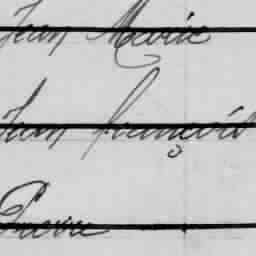 Jean Marie
Jean François
Pierre